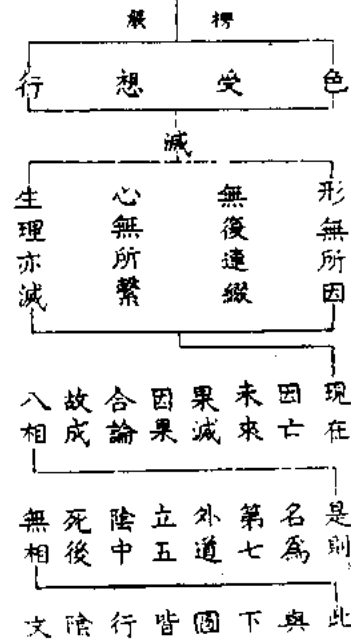 楞嚴
色
受
想
行
滅
形無所因
無復連綴
心無所繫
生理亦滅
現在
因亡
未來
果滅
因果
合論
故成
八相
是則
名為
第七
外道
立五
陰中
死後
無相
此與下圖皆行陰文